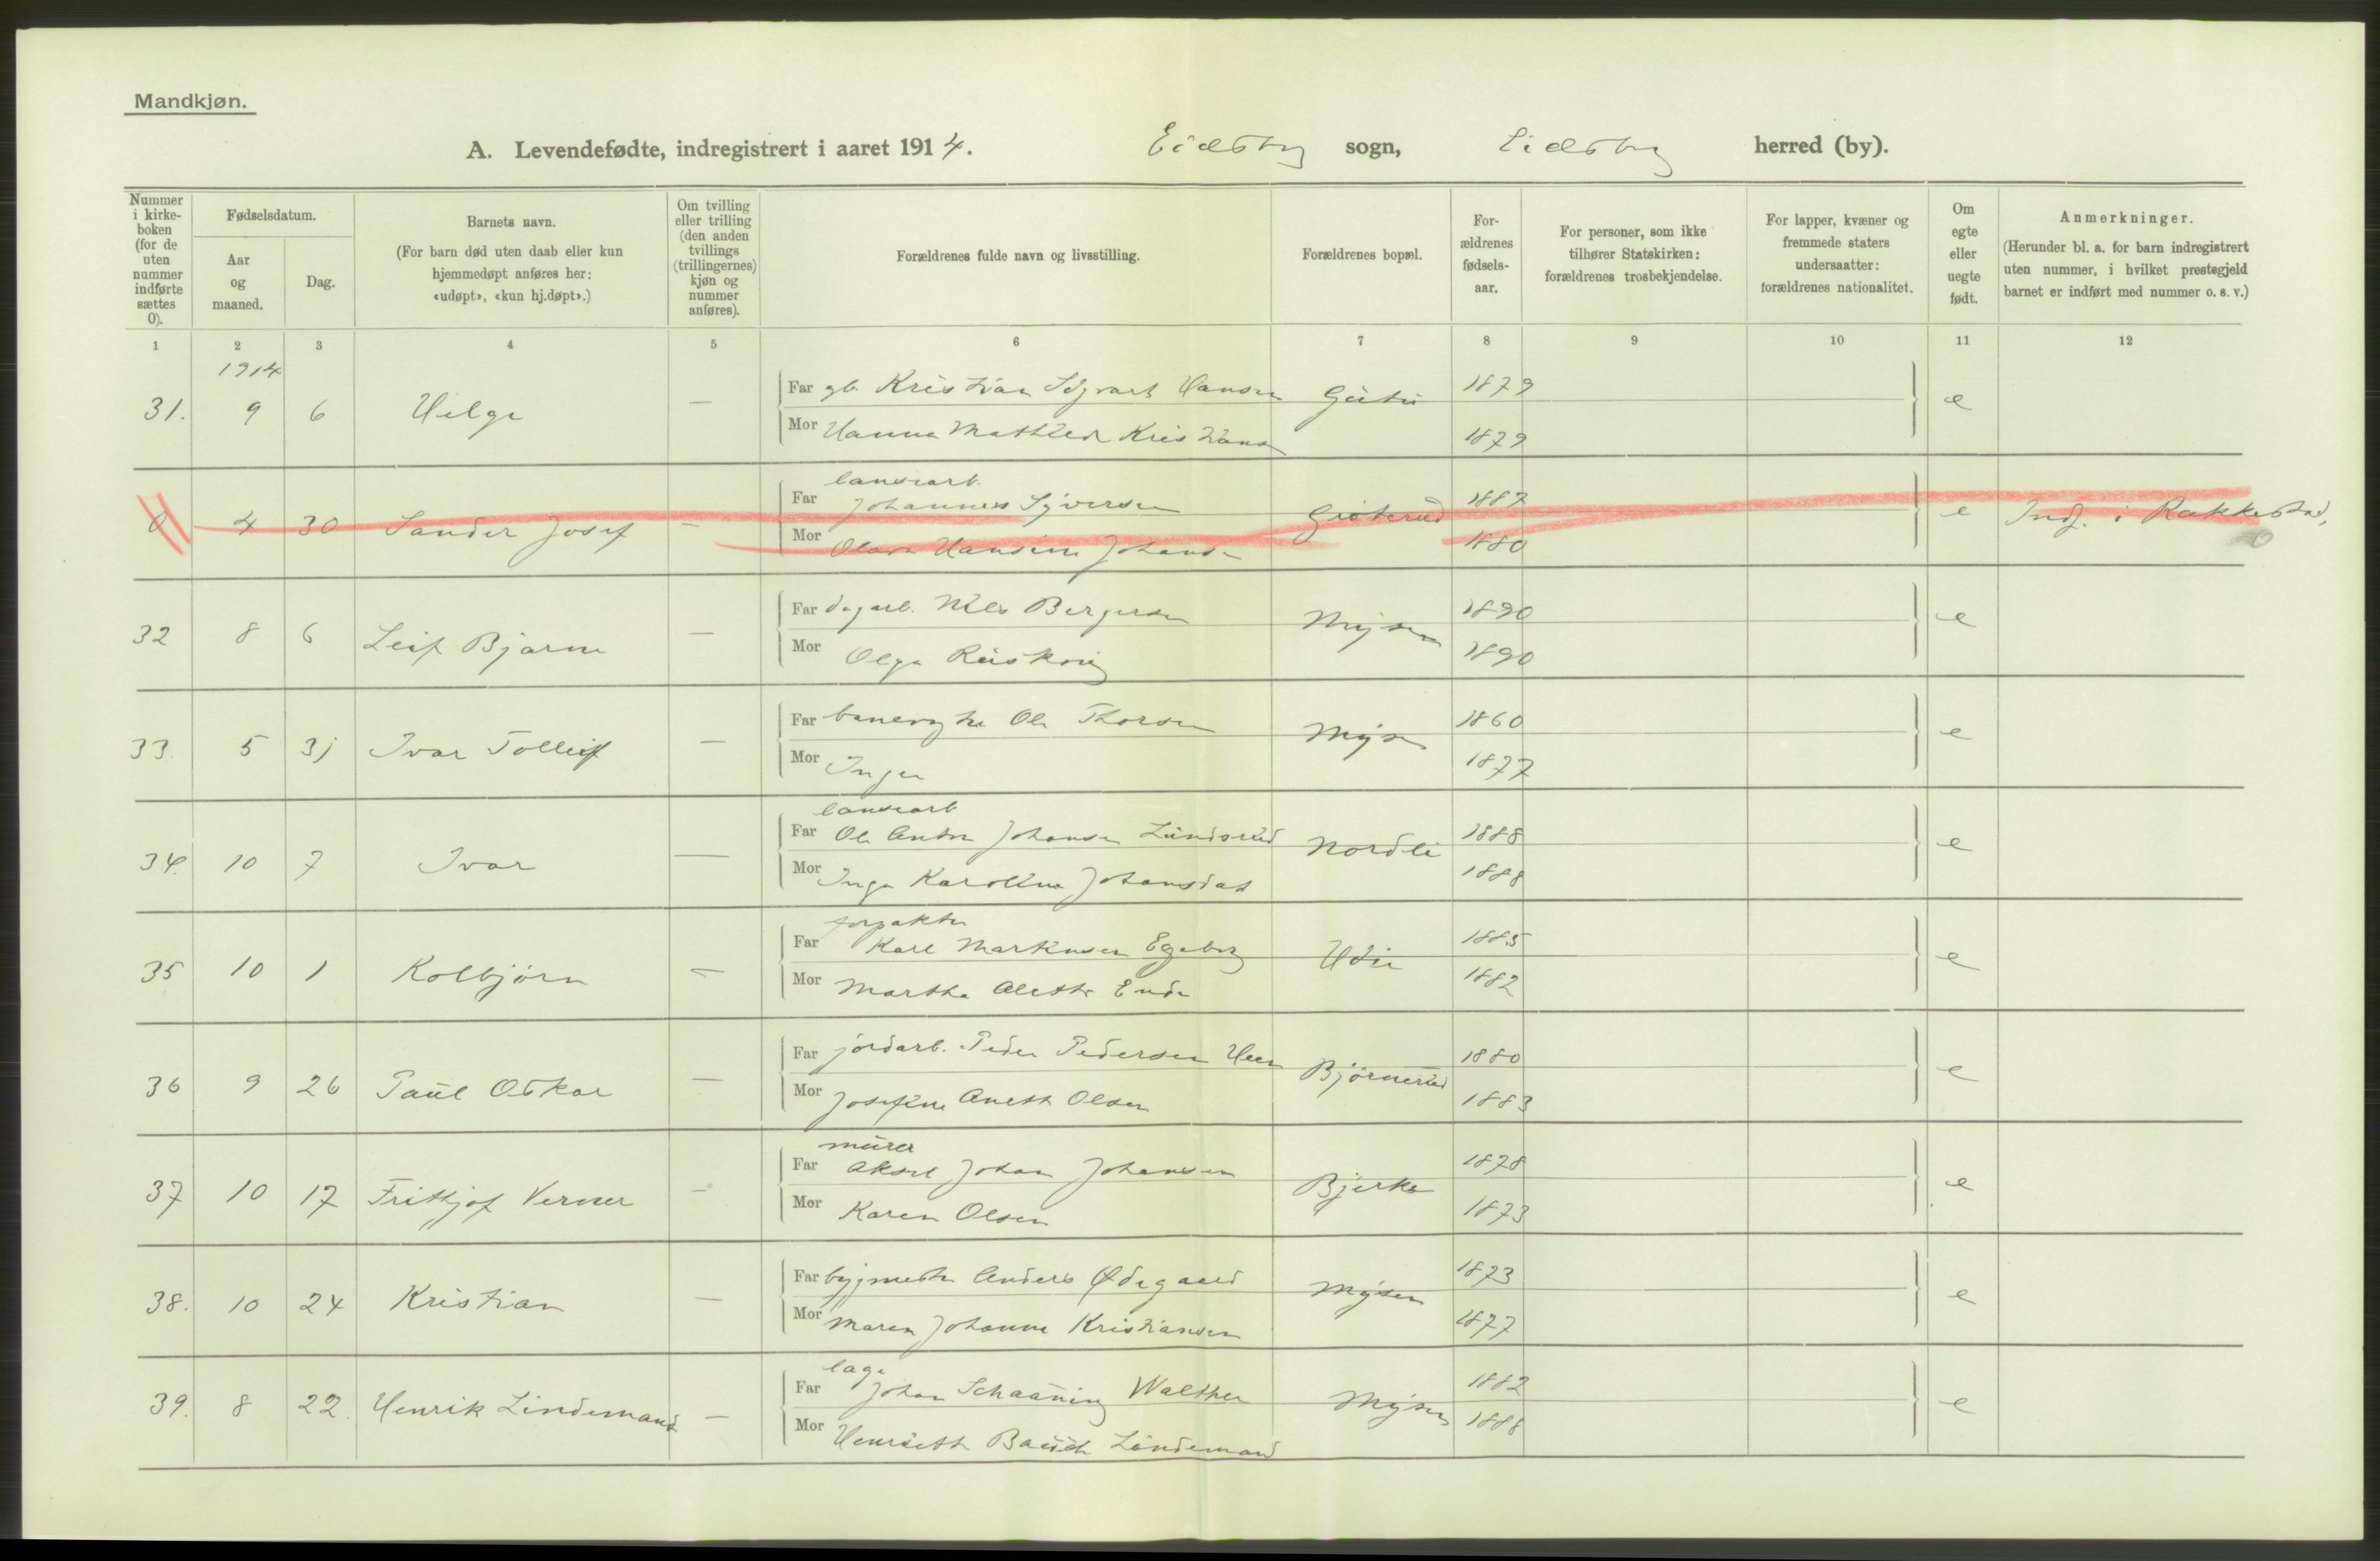 Mandkjøn.
A. Levendefødte, indregistrert i aaret 1914. Eidsberg sogn, Eidsberg herred (by).
Nummer i kirke-boken (for de uten nummer indførte sættes 0).
Fødselsdatum.
Aar og maaned.
Dag.
Barnets navn.
(For barn død uten daab eller kun hjemmedøpt anføres her: «udøpt», «kun hj.døpt».)
Om tvilling eller trilling (den anden tvillings (trillingernes) kjøn og nummer anføres).
Forældrenes fulde navn og livsstilling.
Forældrenes bopæl.
For-ældrenes fødsels-aar.
For personer, som ikke tilhører Statskirken: forældrenes trosbekjendelse.
For lapper, kvæner og fremmede staters undersaatter: forældrenes nationalitet.
Om egte eller uegte født.
Anmerkninger.
(Herunder bl. a. for barn indregistrert uten nummer, i hvilket prestegjeld barnet er indført med nummer o. s. v.)
1 2 3 4 5 6 7 8 9 10 11 12
1914
31. 9 6 Helge — Far gb. Kristian Sigvart Hansen 1879 e
Mor Hanna Mathilde Kristians 1879
landearb.
0 4 30 Sander Josef — Far Johannes Syversen 1887 e Indf. i Rakkestad,
Mor Hansine Johans 1880 0
32 8 6 Leif Bjarne — Far dagarb. Nils Bergersen Mysen 1890 e
Mor Olga 1890
33. 5 31 Ivar Tolleif — Far Ole Thorsen Mysen 1860 e
Mor Inger 1877
landearb
34. 10 7 Ivar — Far Ole Anton Johansen Lundsrud Nordli 1888 e
Mor Inga Karoline Johansdat 1888
forpakter
35 10 1 Kolbjørn — Far Karl Markusen Egeberg 1885 e
Mor Martha Alette 1882
36 9 26 Paul Oskar — Far jordarb. Peder Pedersen Bjørnerud 1880 e
Mor Josefine Aneth Olsen 1883
murer
37 10 17 Frithjof Verner — Far Aksel Johan Johansen Bjerke 1878 e
Mor Karen Olsen 1873
38. 10 24 Kristian — Far byggmester Anders Ødegaard Mysen 1873 e
Mor Maren Johanne Kristiansen 1877
læge
39. 8 22. Henrik Lindemand — Far Johan Schaaning Walther Mysen 1882 e
Mor Henriette Lindemand 1888